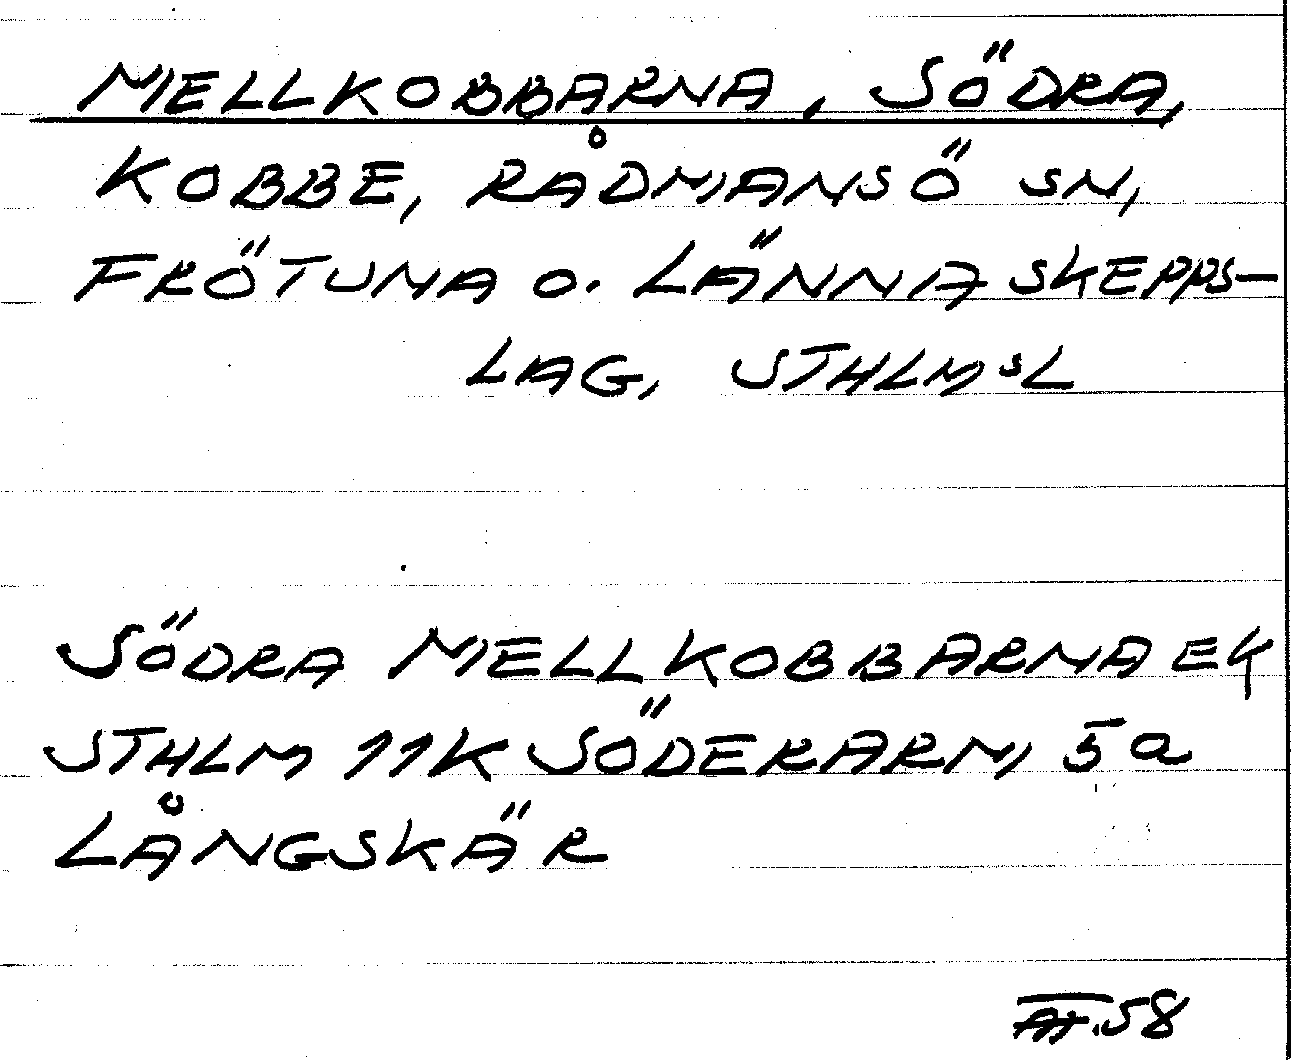 MELLKOBBARNA, SÖDRA,
KOBBE, RÅDMANSÖ SN,
FRÖTUNA O. LÄNNA SKEPPS-
LAG, STHLMSL
SÖDRA MELLKOBBARNA EK
STHLM 11K SÖDERARM, 5a
LÅNGSKÄR
58